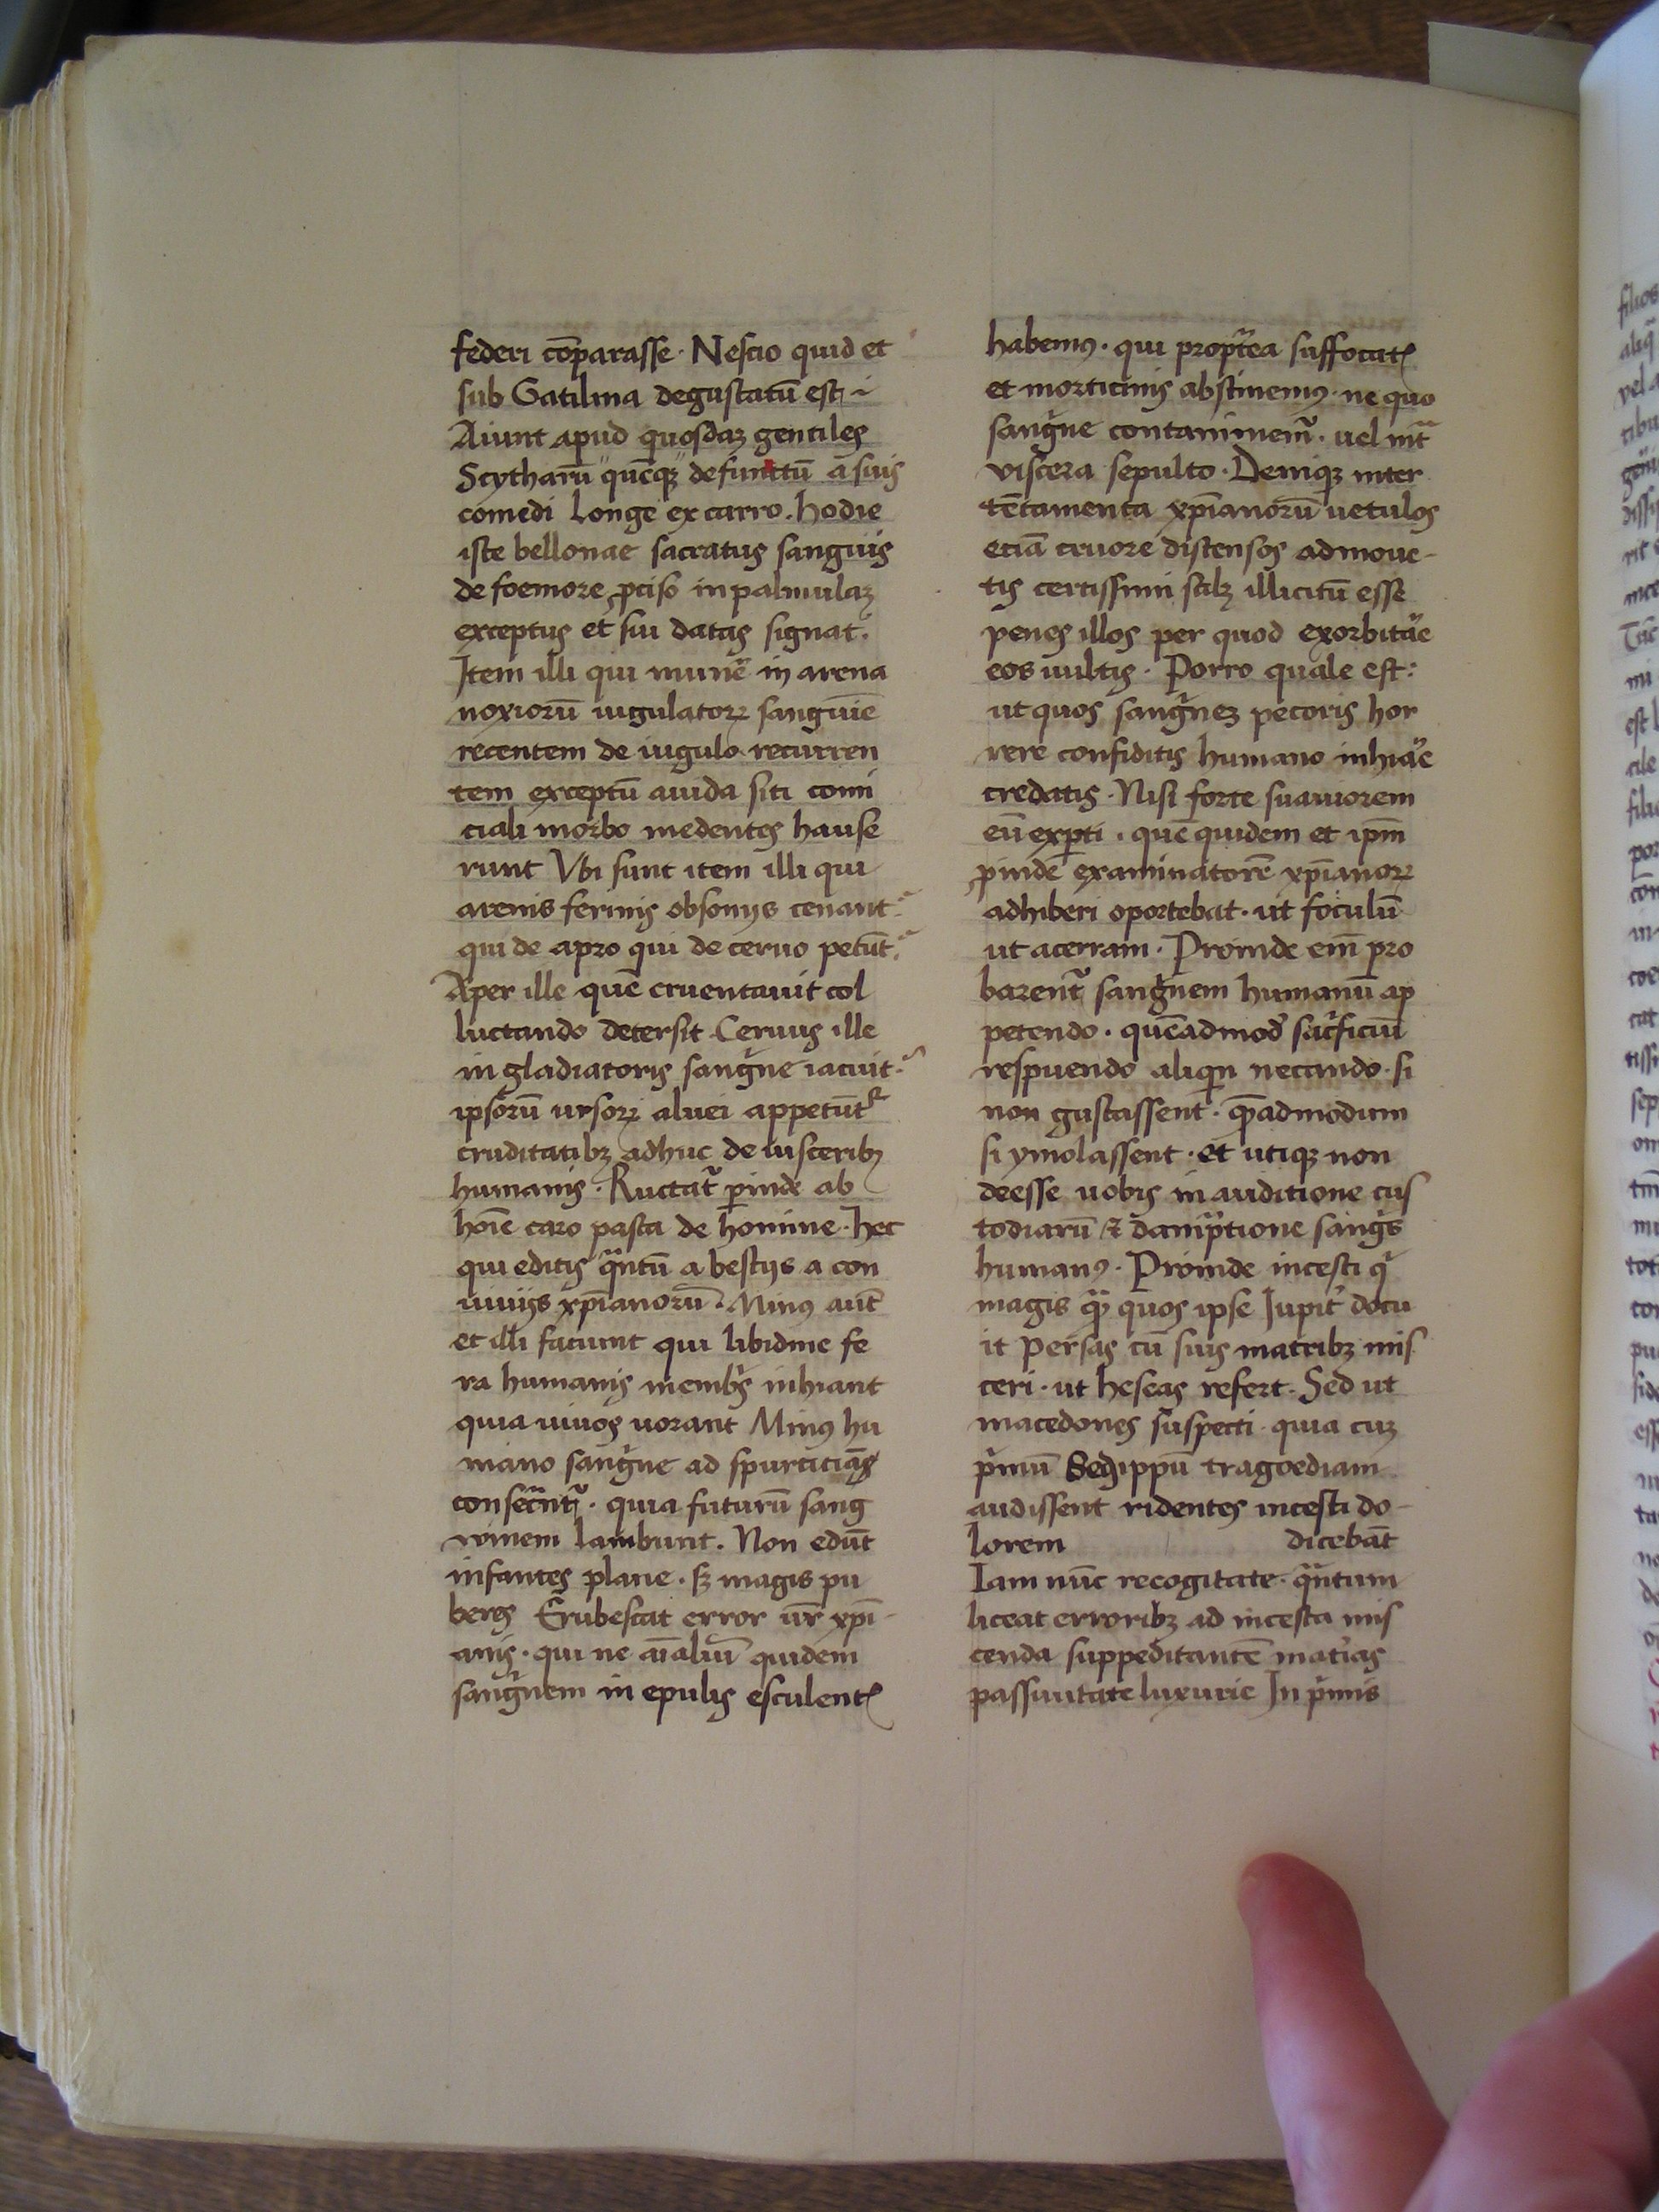 federi cōparasse · Nescio quid et
sub Catilina degustatū est
Aiunt apud quosdaꝫ gentiles
Scytharū quēqꝫ defunctū a suis
comedi longe ex carro . hodie
iste bellonae sacratus sanguis
de foemore ꝓciso in palmulaꝫ
exceptus et sui datas signat .
Item illi qui mune᷑ in arena
noxiorū iugulatoꝝ sanguinē
recentem de iugulo recurren
tem exceptū auida siti comi
ciali morbo medentes hause
runt Vbi sunt item illi qui
arenis ferinis obsonijs cenant
qui de apro qui de ceruo petūt
Aper ille quē cruentauit col
luctando detersit · Ceruus ille
in gladiatoris sangͥne iacuit
ipsorū ursoꝝ aluei appetūtᷣ
cruditatibꝫ adhuc de uisceribꝫ
humanis · Ructatᷣ ꝑinde ab
hoīe caro pasta de homine · hec
qui editis qᷓntū a bestijs a con
uiuijs xp̄ianorū · Minꝰ aūt
et illi faciunt qui libidine fe
ra humanis membrͥs inhiant
quia uiuos uorant Minꝰ hu
mano sangͥne ad spurcitiās
consecrᷓntᷣ · quia futurū sang
uinem lambunt . Non edūt
infantes plane · sꝫ magis pu
beres Erubescat error ur̄ xp̄i
anis · qui ne aīaliū quidem
sangͥnem in epulis esculentꝭ
habemꝰ · qui propt᷑ea suffocatꝭ
et morticinis abstinemꝰ · ne quo
sangͥne contaminemᷣ · uel intᷓ
viscera sepulto · Deniqꝫ inter
tēt̄amenta xp̄ianorū uetulos
etiā cruore distensos admoue-
tis certissimi scilꝫ illicitū esse
penes illos per quod exorbita᷑e
eos uultis · Porro quale est :
ut quos sangͥneꝫ pecoris hor
rere confiditis humano inhia᷑e
credatis · Nisi forte suauiorem
eū exꝑti · quē quidem et ipm̄
ꝓinde examinatorē xp̄ianoꝝ
adhiberi oportebat · ut foculū
ut acerram · Proinde em̄ pro
barentᷣ sangͥnem humanū ap
petendo · quēadmod᷒ sac᷑ficiū
respuendo alioqͥn necando · si
non gustassent · quēadmodum
si ymolassent · et utiqꝫ non
deesse uobis in auditione cus
todiarū ⁊ dampͣtione sangͥs
humanꝰ · Proinde incesti qͥ
magis qᷓꝫ quos ipse Iupit᷑ docu
it Persas cū suis matribꝫ mis
ceri · ut hescas refert · Sed ut
macedones suspecti · quia cuꝫ
pͥmū Oedippū tragoediam
audissent ridentes incesti do-
lorem dicebāt
Iam nūc recogitate · qᷓntum
liceat erroribꝫ ad incesta mis
cenda suppeditantē mat᷑ias
passiuitate luxurie In pͥmis